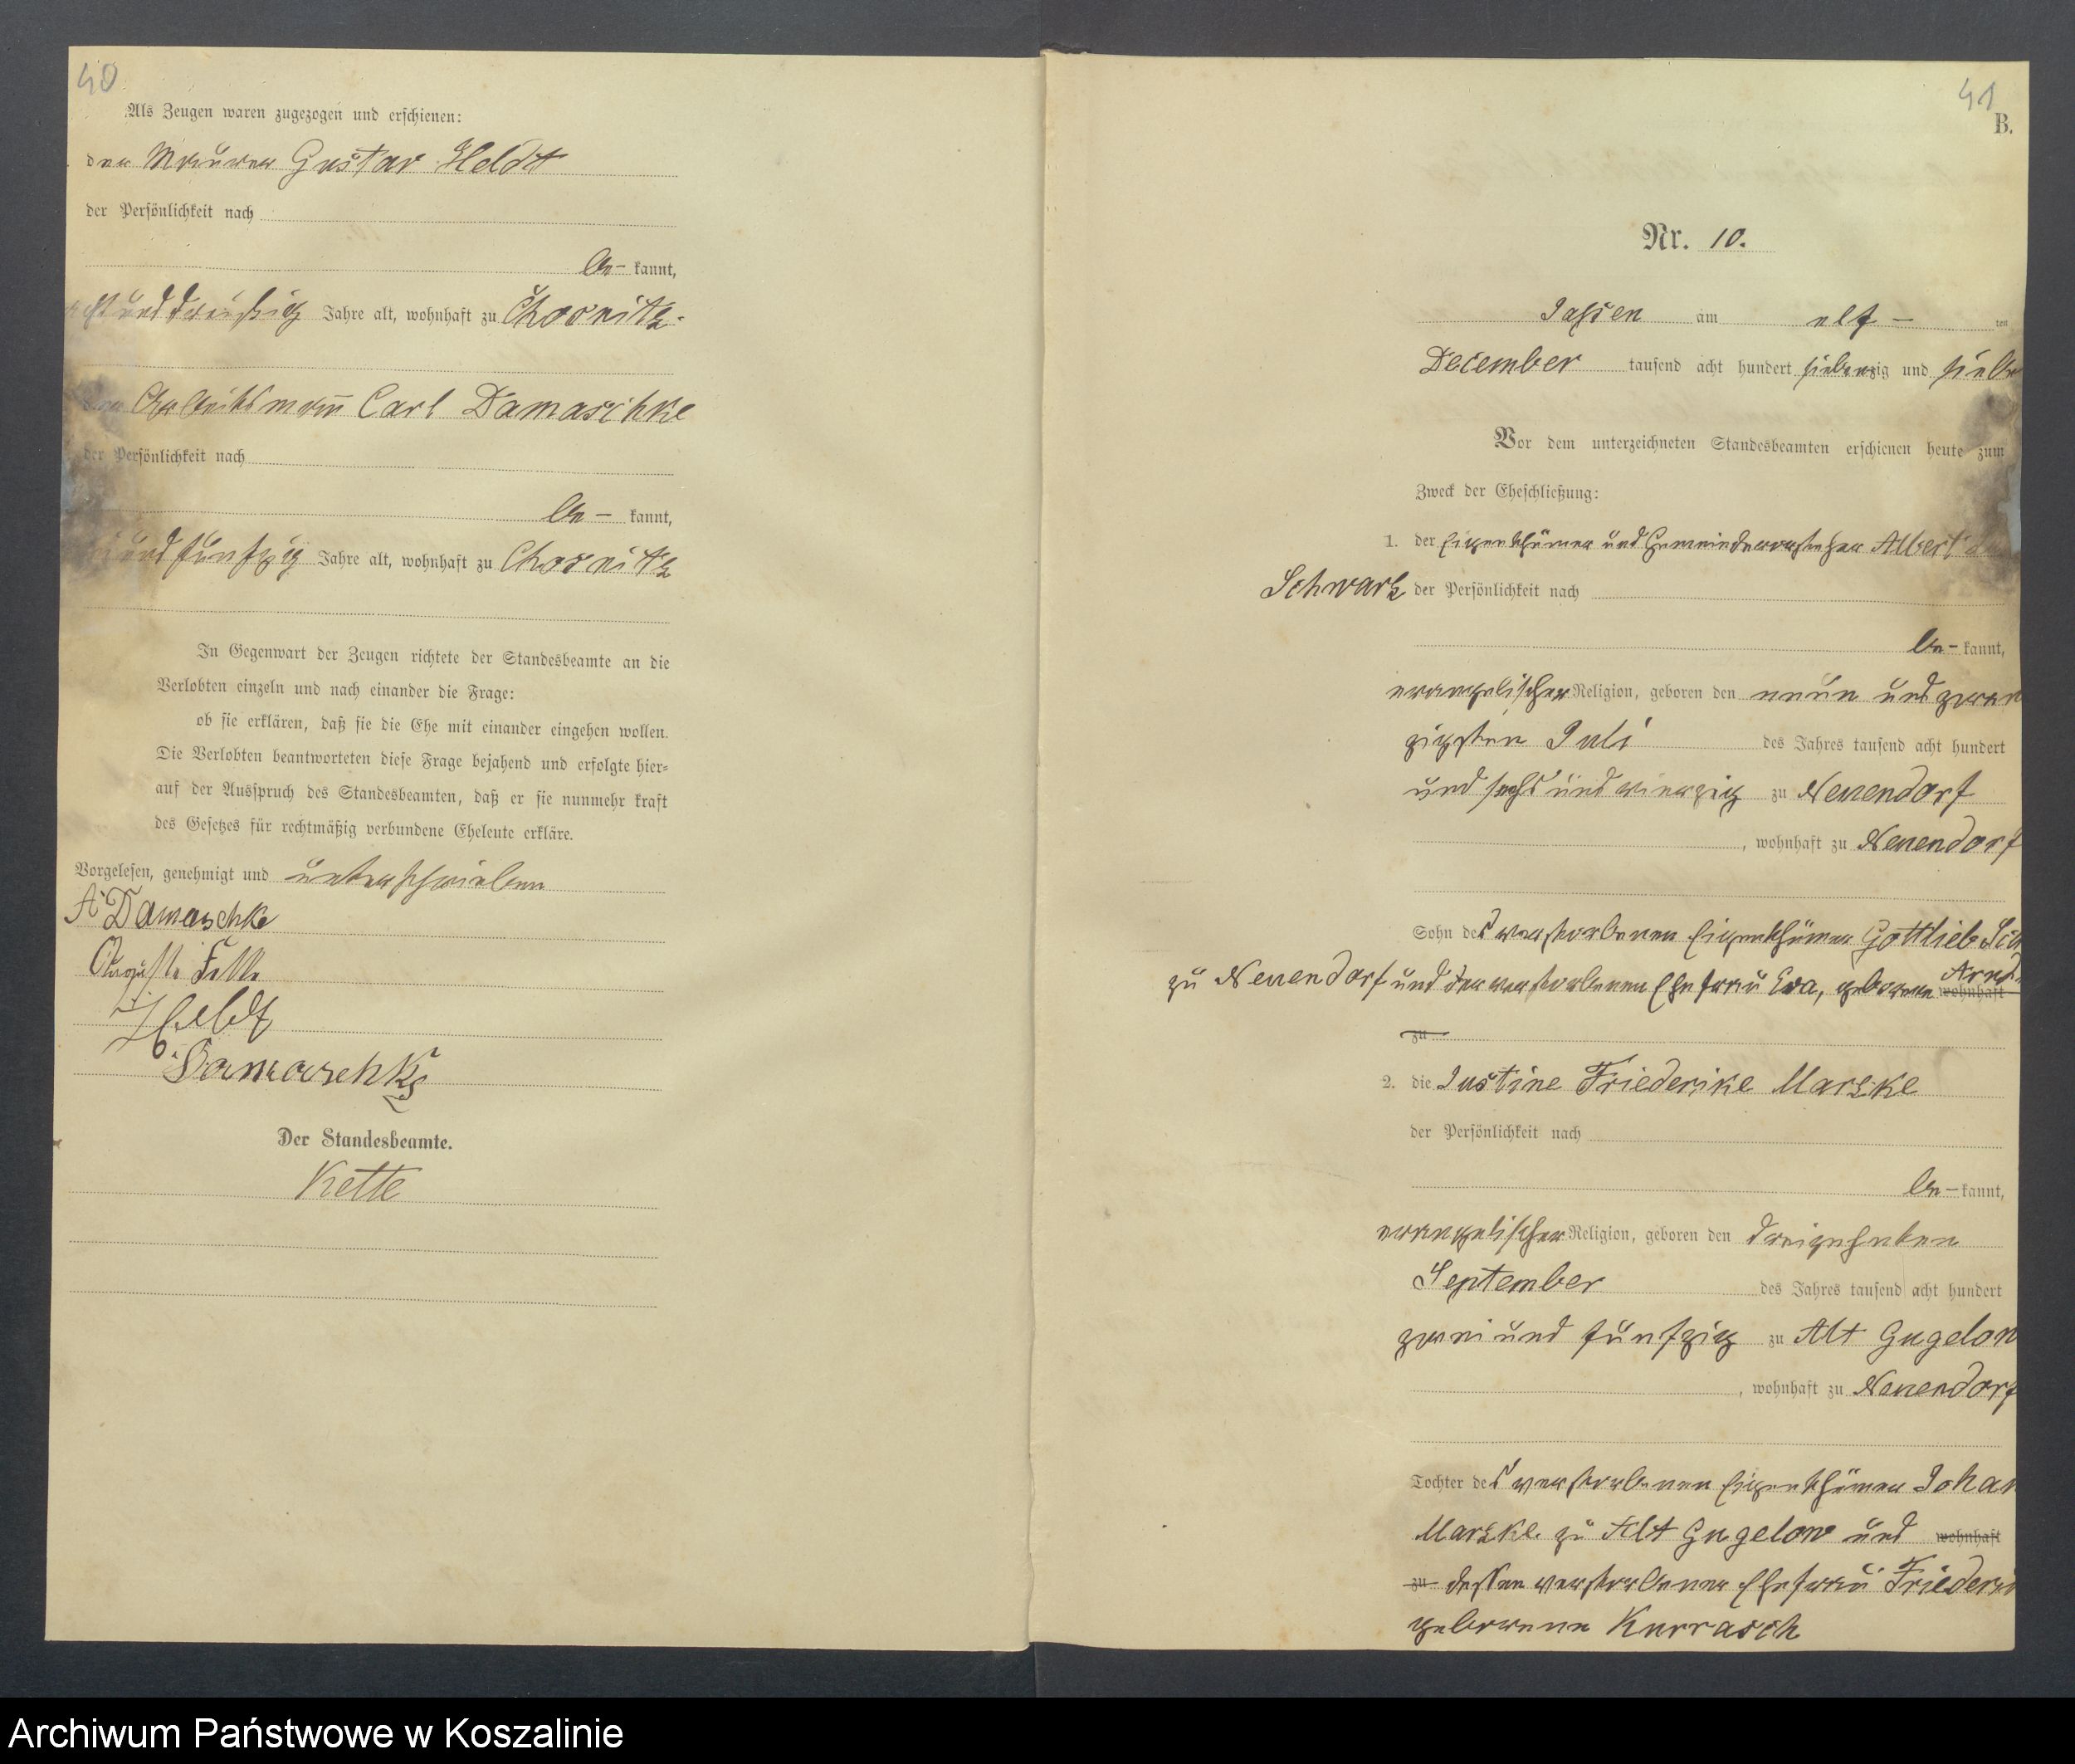 40
Als Zeugen waren zugezogen und erschienen:
der Maurer Gustav Heldt
der Persönlichkeit nach
be- kannt,
acht und dreißig Jahre alt, wohnhaft zu Chosnitz.
der Arbeitsmann Carl Damaschke
der Persönlichkeit nach
be- kannt,
und fünfzig Jahre alt, wohnhaft zu Chosnitz
In Gegenwart der Zeugen richtete der Standesbeamte an die
Verlobten einzeln und nach einander die Frage:
ob sie erklären, daß sie die Ehe mit einander eingehen wollen.
Die Verlobten beantworteten diese Frage bejahend und erfolgte hier-
auf der Ausspruch des Standesbeamten, daß er sie nunmehr kraft
des Gesetzes für rechtmäßig verbundene Eheleute erkläre.
Vorgelesen, genehmigt und unterschrieben
A Damaschke
Auguste
Heldt
Damaschke
Der Standesbeamte.
Kette
41
B.
Nr. 10.
Jassen am elf- ten
December tausend acht hundert siebenzig und siebe
Vor dem unterzeichneten Standesbeamten erschienen heute zum
Zweck der Eheschließung:
1. der Eigenthümer und Gemeindevorsteher Albert
Schwarz der Persönlichkeit nach
be- kannt,
evangelischer Religion, geboren den neun und zwan
zigsten Juli des Jahres tausend acht hundert
und sechs und vierzig zu Neuendorf
, wohnhaft zu Neuendorf
Sohn des verstorbenen Eigenthümer Gottlieb Sch
zu Neuendorf und der verstorbenen Ehefrau Eva, geborene Arnd wohnhaft
zu
2. die Justine Friederike Marzke
der Persönlichkeit nach
be- kannt,
evangelischer Religion, geboren den dreizehnten
September des Jahres tausend acht hundert
zwei und fünfzig zu Alt Gugelow
, wohnhaft zu Neuendorf
Tochter des verstorbenen Eigenthümer Johan
Marzke zu Alt Gugelow und wohnhaft
zu dessen verstorbener Ehefrau Friederi
geborene Kurrasch
Archiwum Państwowe w Koszalinie